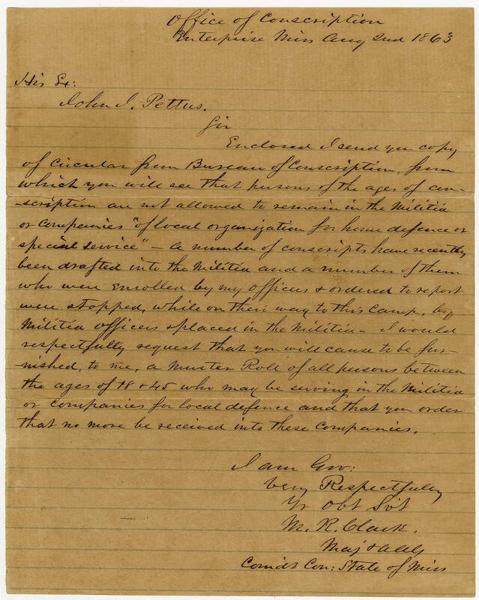 Office of Conscription
Enterprise Miss Aug 2nd 1863
His Ex:
John J. Pettus.
Sir
Enclosed I send you copy
of Circular from Bureau of Conscription, from
which you will see that persons of the ages of con-
-scription are not allowed to remain in the Militia
or Companies "of local organization for home defence or
special service" - A number of conscripts have recently
been drafted into the Militia and a number of them
who were enrolled by my officers & ordered to report
were stopped, while on their way to this Camp, by
Militia officers & placed in the Militia - I would
respectfully request that you will cause to be fur-
-nished, to me, a Muster Roll of all persons between
the ages of 18 & 45 who may be serving in the Militia
or Companies for local defence and that you order
that no more be received into these Companies.
I am Gov:
Very Respectfully
Yr Obt Svt
M. R. Clark.
Maj & AAG
Comdt Con: State of Miss